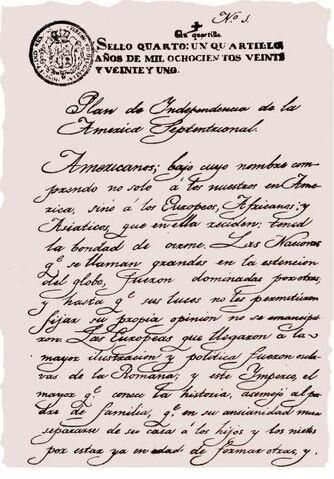 No. 1.
Un quartillo.
SELLO QUARTO: UN QUARTILLO
AÑOS DE MIL OCHOCIENTOS VEINTE
Y VEINTE Y UNO.
Plan de Independencia de la
America Septentrional.
Americanos; bajo cuyo nombre com
prendo no solo á los nuestros en Ame
rica, sinó á los Europeos, Africanos; y
Asiaticos, que en ella reciden; tened
la bondad de oirme. Las Naciones
qe. se llaman grandes en la estencion
del globo, fueron dominadas por otras,
y hasta qe. sus luces no les permitieron
fijar su propia opinion no se emancipa
ron. Las Europeas que llegaron á la
mayor ilustracion y politica fueron escla
vas de la Romana; y este Imperio, el
mayor qe. conoce la historia, asemejó al pa
dre de familia, qe. en su ancianidad mira
separarse de su casa á los hijos y los nietos
por estar ya en edad de formar otras, y